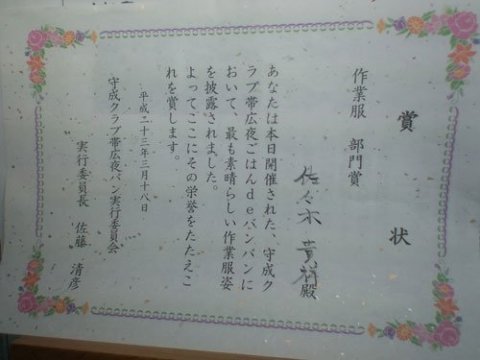 賞状
作業服 部門賞
佐々木 殿
あなたは本日開催された、守成ク
ラブ帯広夜ごはんdeバンバンに
おいて、最も素晴らしい作業服姿
を披露されました。
よってここにその栄誉をたたえこ
れを賞します。
平成二十三年三月十八日
守成クラブ帯広夜バン実行委員会
実行委員長 佐藤 清彦